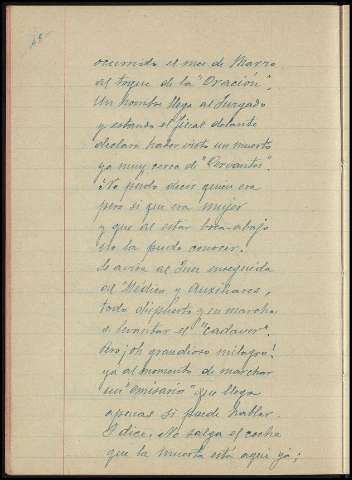 ocurrido el mes de Marzo
al toque de la "Oración".
Un hombre llega al Jurgado
y estando el fiscal delante
declara haber visto un muerto
ya muy cerca de "Cervantes".
No pudo decir quien era
pero si que era mujer
y que al estar boca-abajo
no la pudo conocer.
Se avisa al Juez enseguida
al Médico y Auxiliares,
todo dispuesto y en marcha
a levantar el "cadaver".
Pero ¡oh grandioso milagro!
ya al momento de marchar
un "emisario" que llega
apenas si puede hablar
I dice. No salga el coche
que la muerta está aquí ya;